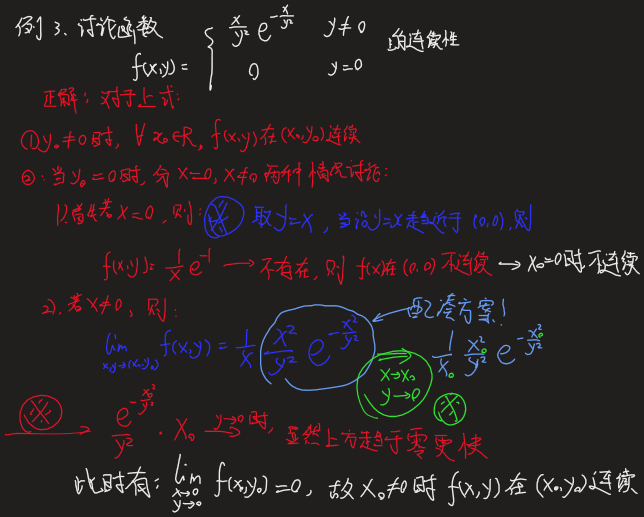 例3. 讨论函数 f(x,y) = { x/y² e^(-x/y²) y≠0 的连续性
0 y=0
正解: 对于上式:
① y₀≠0时, ∀ x₀∈R, f(x,y)在(x₀,y₀)连续
②. 当y₀=0时, 分 x=0, x≠0 两种情况讨论:
1) 若 x=0, 则: ※ 取 y=x, 当沿y=x趋近于(0,0), 则
f(x,y)= 1/x e^(-1) → 不存在, 则 f(x)在(0,0)不连续 → x₀=0时不连续
2). 若 x≠0, 则: 配凑方案!
lim x,y→(x₀,y₀) f(x,y) = 1/x x²/y² e^(-x²/y²) ⟹ x→x₀ y→0 1/x₀ x₀²/y² e^(-x₀²/y²) ※
※ → e^(-x₀²/y²)/y² · x₀ y→0时, 显然上方趋于零更快
此时有: lim x→0 y→0 f(x,y₀)=0, 故 x₀≠0时 f(x,y)在(x₀,y₀)连续